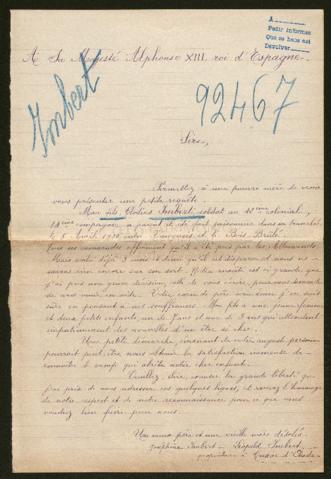 A
Pedir informes
Que se hace así
Devolver
A Sa Majesté Alphonse XIII roi d'Espagne
Imbert
92467
Sire,
Permettez à une pauvre mère de venir
vous présenter une petite requête.
Mon fils, Imbert, soldat au colonial,
compagnie a paru et été fait prisonnier dans un
le Avril entre et le Bois Brûlé.
Tous ses camarades affirment qu'il a été pris par les Allemands.
Mais voilà déjà 3 mois et demi qu'il a disparu et nous ne
savons rien encore sur son sort. Notre anxiété est si grande que
j'ai pris mon grand courage, de vous écrire, pour vous demander
de nous venir en aide.
Mon fils a une jeune femme
et deux petits enfants, un de 7 ans et un de 3 ans qui attendent
impatiemment des nouvelles d'un être si cher.
Une petite démarche, venant de votre auguste personne
pourrait peut être nous la satisfaction immense de
connaître le camp qui abrite notre cher enfant.
Veuillez, Sire, la grande liberté que
j'ai pris de vous adresser ces quelques lignes, et recevez l'hommage
de notre respect et de notre reconnaissance pour ce que vous
voudrez bien faire pour nous.
Un père et une vieille mère désolés
Joséphine Imbert - Léopold Imbert,
propriétaire à